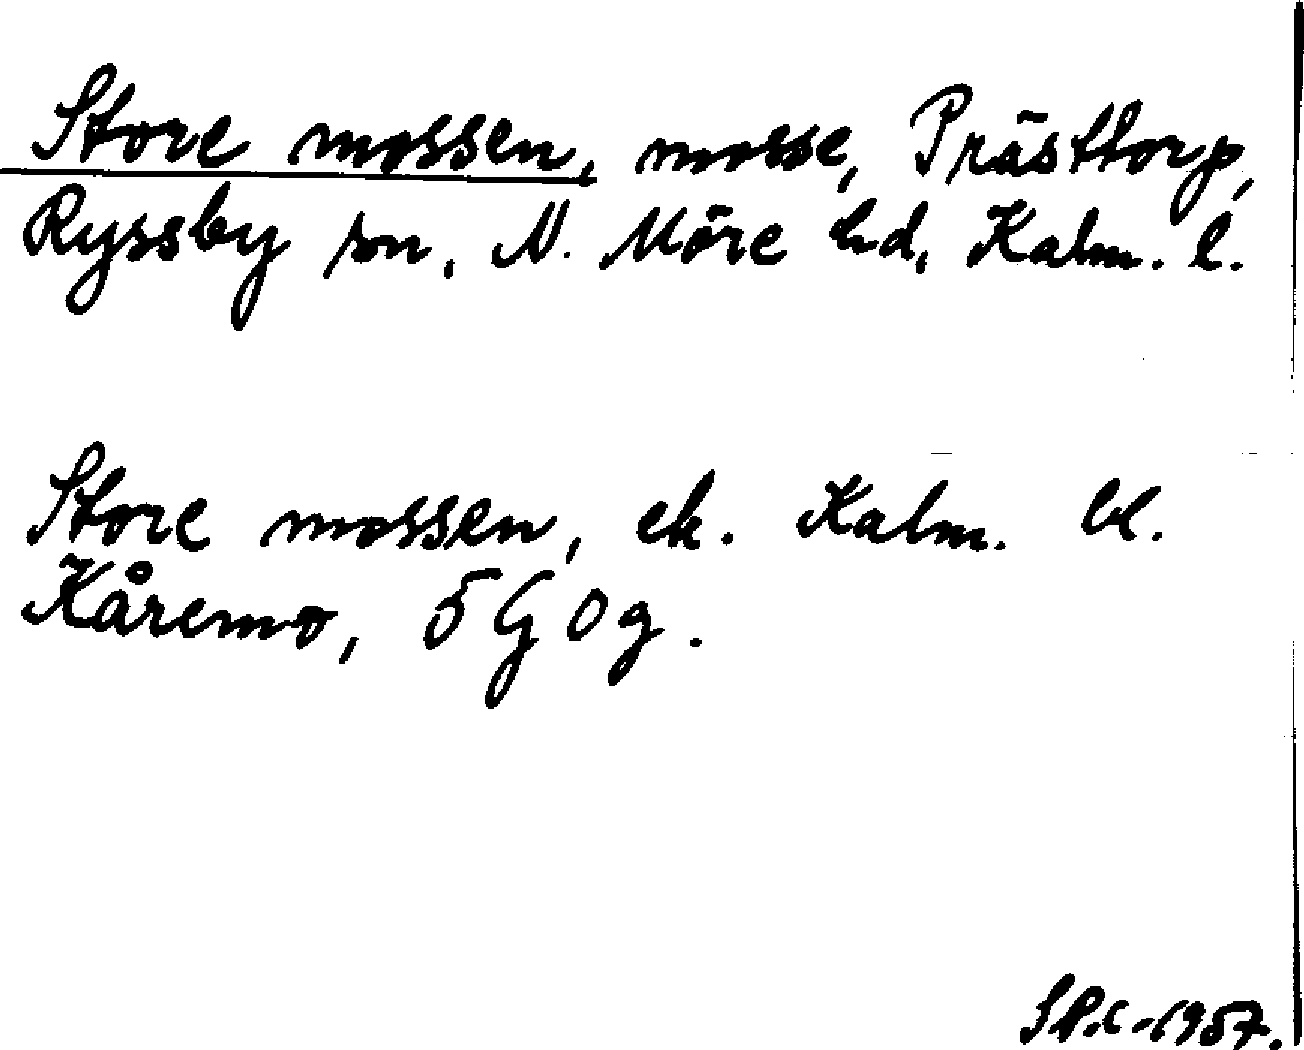 Store mossen, mosse, Prästtorp,
Ryssby sn, N. Möre hd, Kalm. l.
Store mossen, ek. Kalm. bl.
Kåremo, 5G0g.
1957.